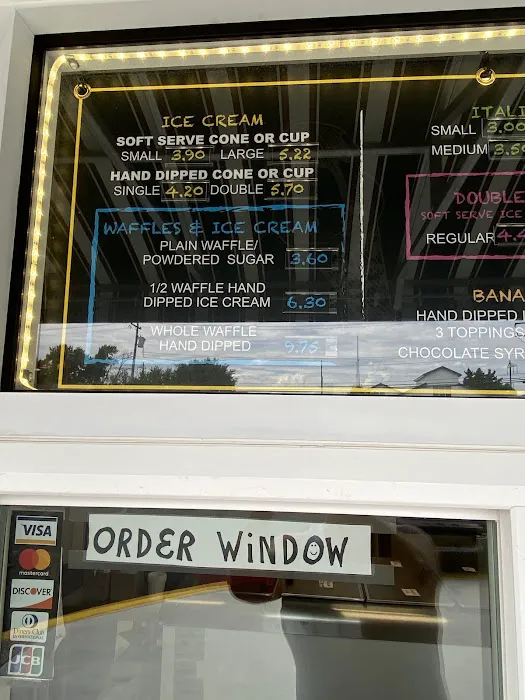 ICE CREAM
SOFT SERVE CONE OR CUP
SMALL 3.90 LARGE 5.22
HAND DIPPED CONE OR CUP
SINGLE 4.20 DOUBLE 5.70
WAFFLES & ICE CREAM
PLAIN WAFFLE/
POWDERED SUGAR 3.60
1/2 WAFFLE HAND
DIPPED ICE CREAM 6.30
WHOLE WAFFLE
HAND DIPPED 9.75
SMALL
MEDIUM
DOUBLE
SOFT SERVE ICE
REGULAR
HAND DIPPED
3 TOPPINGS
CHOCOLATE
ORDER WINDOW
VISA
mastercard
DISCOVER
Diners Club
INTERNATIONAL
JCB